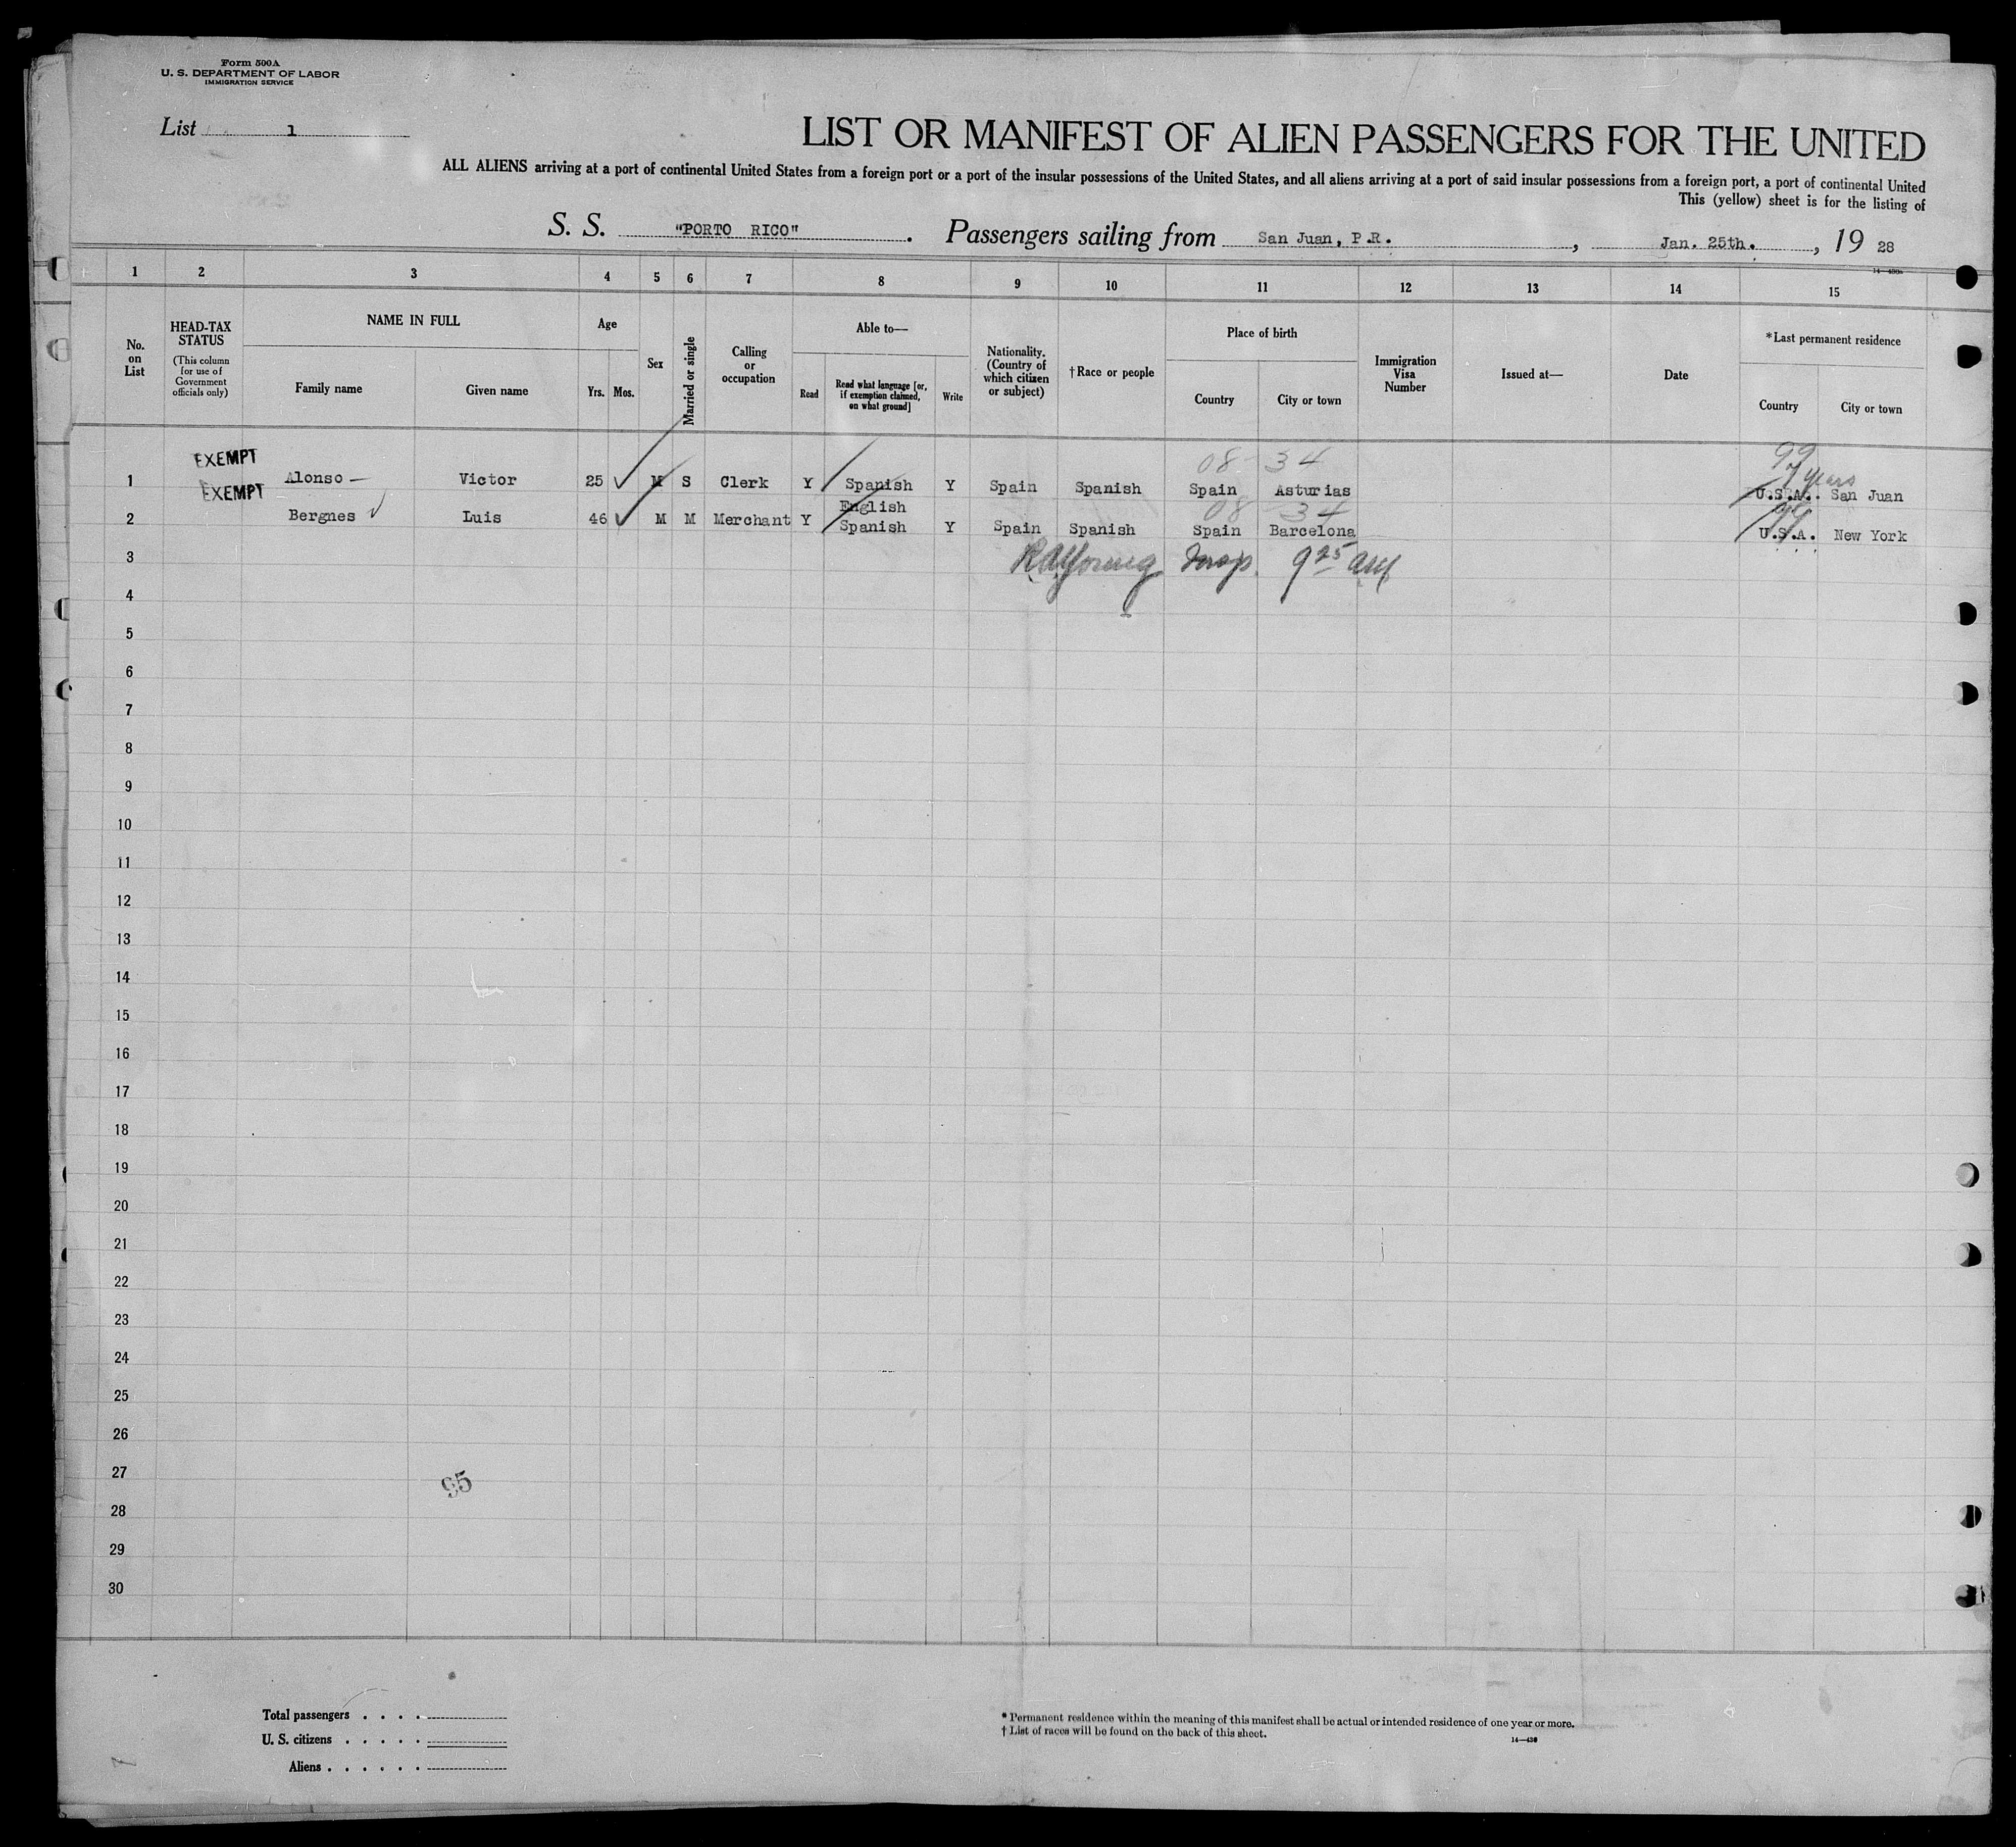 Form 500A
U. S. DEPARTMENT OF LABOR
IMMIGRATION SERVICE
List 1
LIST OR MANIFEST OF ALIEN PASSENGERS FOR THE UNITED
ALL ALIENS arriving at a port of continental United States from a foreign port or a port of the insular possessions of the United States, and all aliens arriving at a port of said insular possessions from a foreign port, a port of continental United
This (yellow) sheet is for the listing of
S. S. "PORTO RICO". Passengers sailing from San Juan, P.R. , Jan. 25th. , 19 28
1 2 3 4 5 6 7 8 9 10 11 12 13 14 15
No. on List
HEAD-TAX STATUS
(This column for use of Government officials only)
NAME IN FULL
Family name Given name
Age
Yrs. Mos.
Sex
Married or single
Calling or occupation
Able to—
Read
Read what language [or, if exemption claimed, on what ground]
Write
Nationality. (Country of which citizen or subject)
†Race or people
Place of birth
Country City or town
Immigration Visa Number
Issued at—
Date
*Last permanent residence
Country City or town
08 34 99
7 years
1 EXEMPT Alonso — Victor 25 M S Clerk Y Spanish Y Spain Spanish Spain Asturias U.S.A. San Juan
English
08 34
2 EXEMPT Bergnes Luis 46 M M Merchant Y Spanish Y Spain Spanish Spain Barcelona U.S.A. New York
3 Young Insp. 9 25 am
4
5
6
7
8
9
10
11
12
13
14
15
16
17
18
19
20
21
22
23
24
25
26
27
95
28
29
30
Total passengers . . . .
U. S. citizens . . . . .
Aliens . . . . . .
* Permanent residence within the meaning of this manifest shall be actual or intended residence of one year or more.
† List of races will be found on the back of this sheet.
14—430